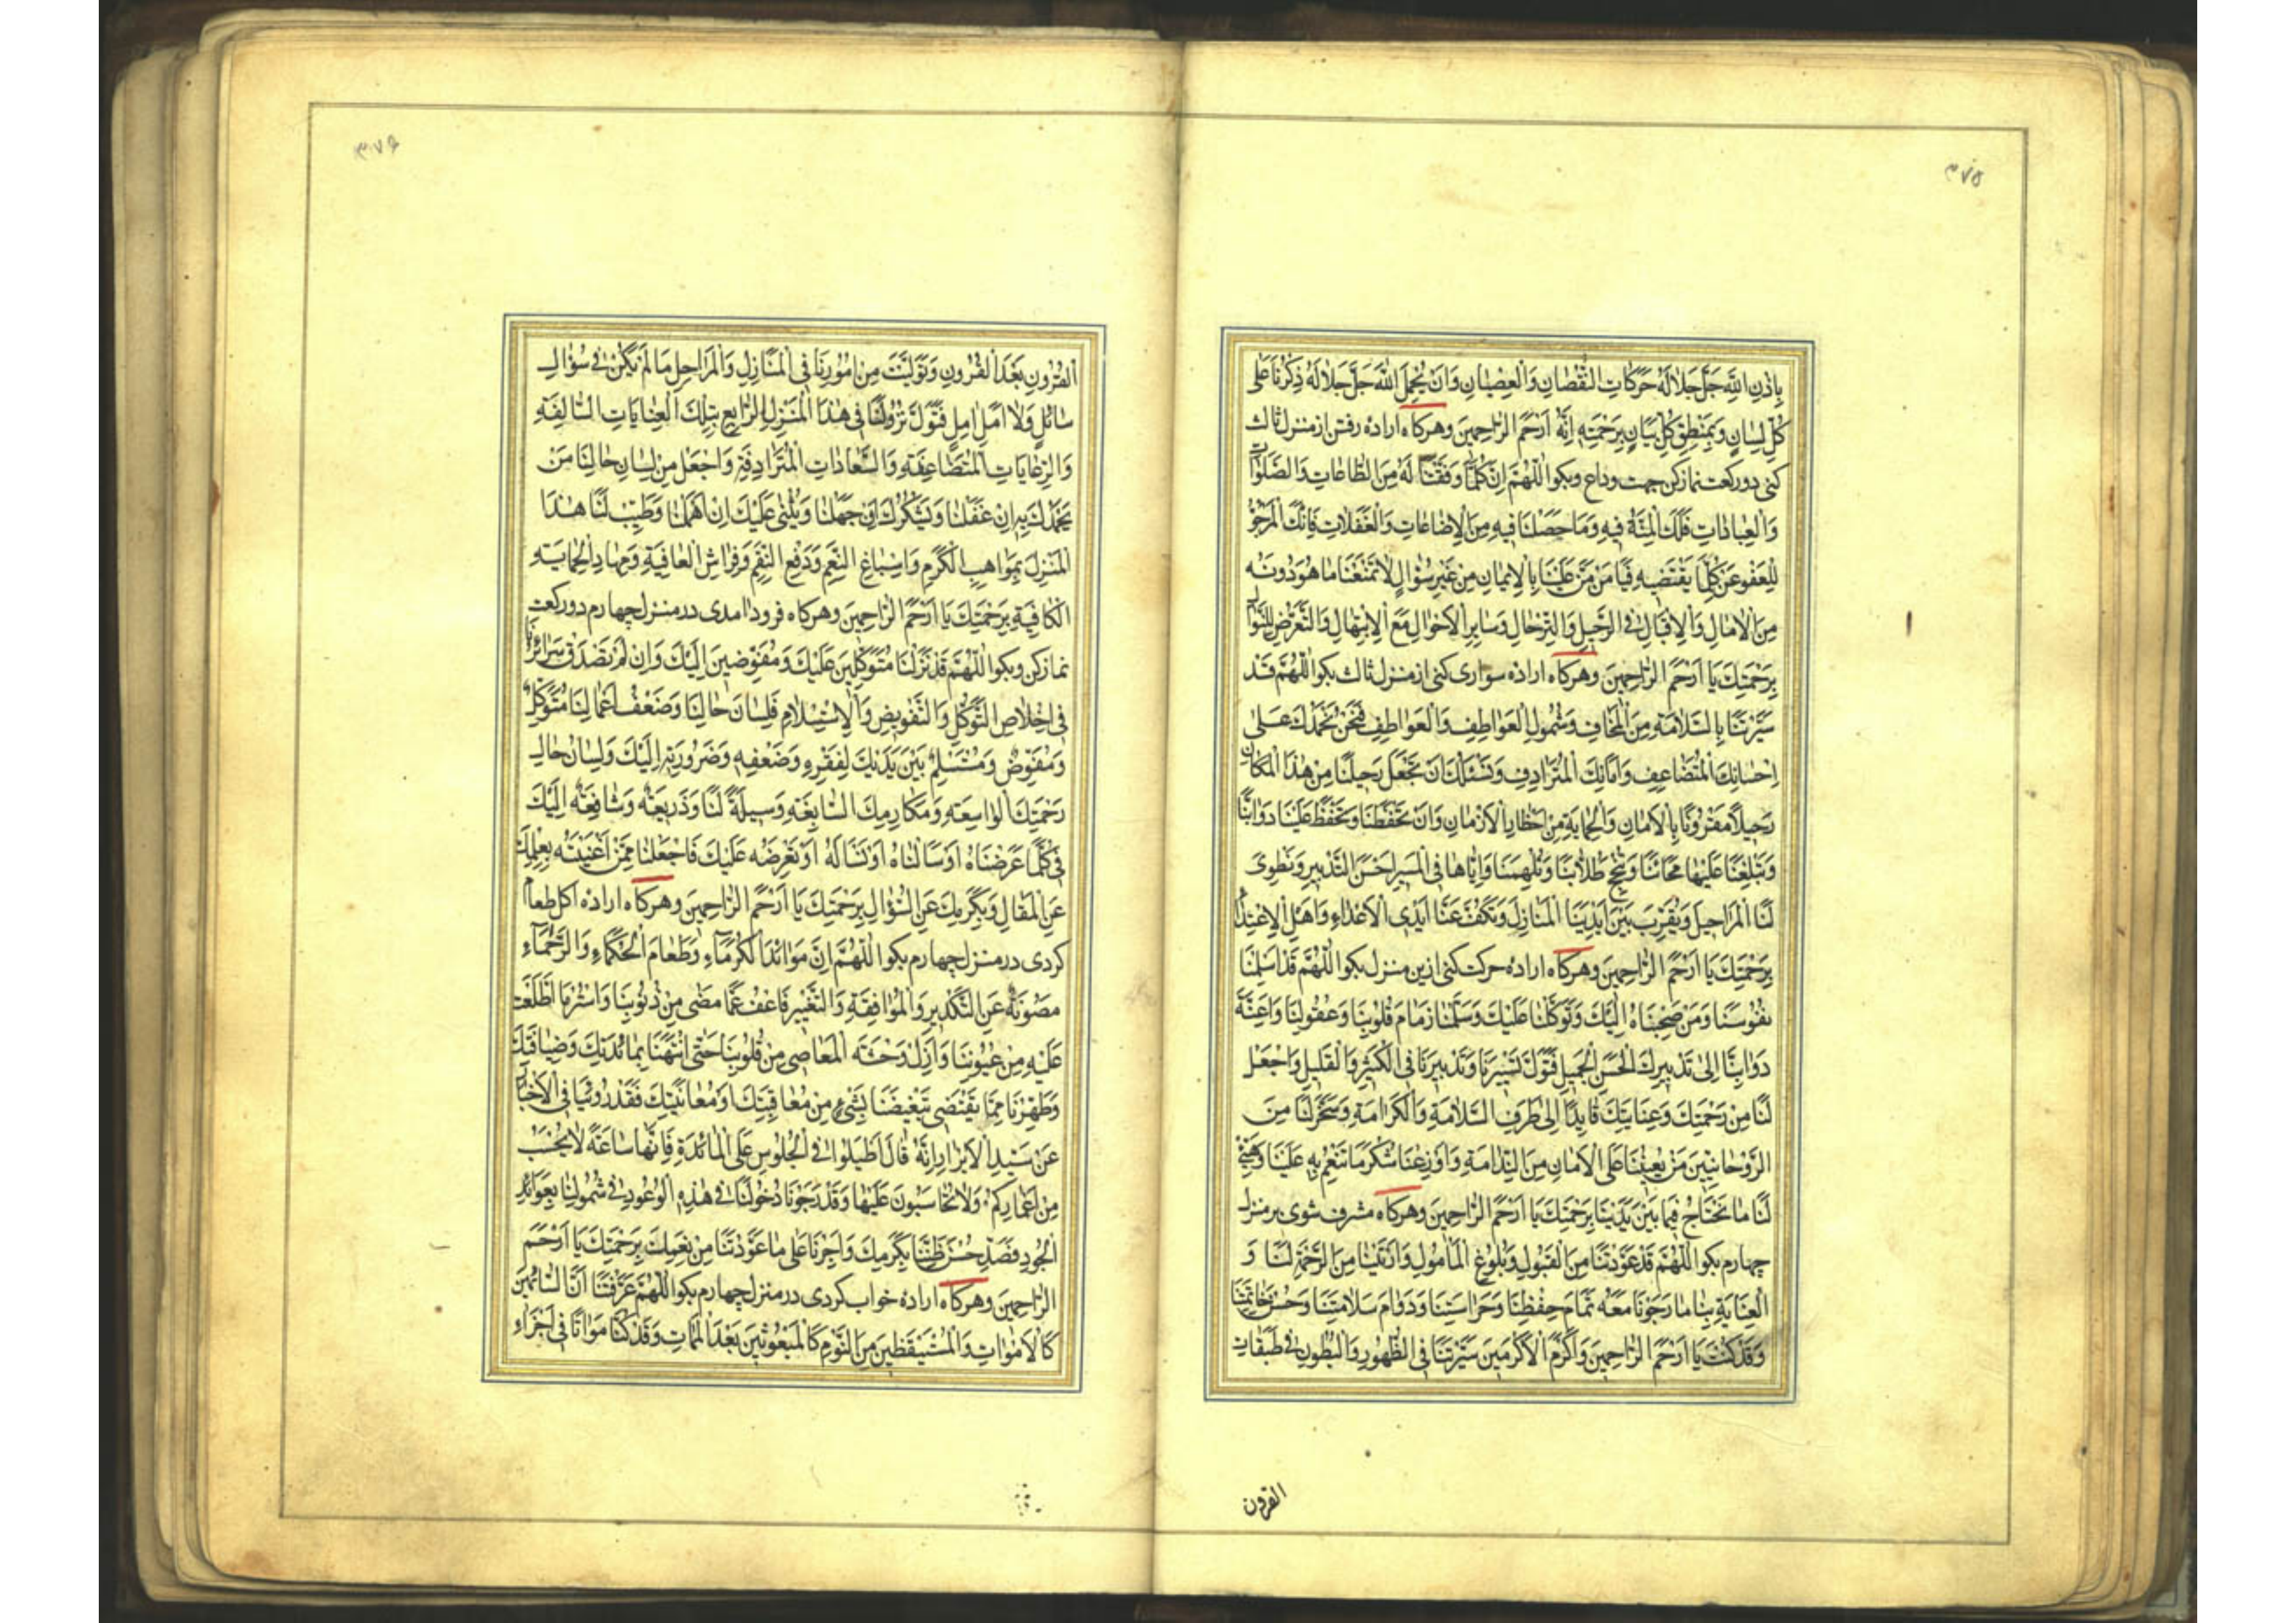 ٣٧٥
بِاِذْنِ اللّهِ جَلَّ جَلالُهُ حَرَكاتِ النُّقْصانِ وَالْعِصْيانِ وَاَنْ يُجْمِلَ اللّهُ جَلَّ جَلالُهُ ذِكْرَنا عَلى
كُلِّ لِسانٍ وَبِمَنْطِقِ كُلِّ بَيانٍ بِرَحْمَتِهِ اِنَّهُ اَرْحَمُ الرّاحِمينَ وهركاه اراده رفتن از منزل ثالث
كنى دو ركعت نماز كن جهت وداع وبكو اللّهُمَّ اِنَّ كُلَّما وَفَّقْتَنا لَهُ مِنَ الطّاعاتِ وَالصَّلَواتِ
وَالْعِباداتِ فَلَكَ الْمِنَّةُ فيهِ وَما حَصَلْنا فيهِ مِنَ الْاِضاعاتِ وَالْغَفَلاتِ فَاِنَّكَ الْمَرْجُوُّ
لِلْعَفْوِ عَنْ كُلِّ ما يَقْتَضيهِ فَيا مَنْ مَنَّ عَلَيْنا بِالْايمانِ مِنْ غَيْرِ سُؤالٍ لا تَمْنَعْنا ما هُوَ دُونَهُ
مِنَ الْامالِ وَالْاِقْبالِ فِى الرَّحيلِ وَالتِّرْحالِ وَسايِرِ الْاَحْوالِ مَعَ الْاِبْتِهالِ وَالتَّعَرُّضِ لِلنَّوالِ
بِرَحْمَتِكَ يا اَرْحَمَ الرّاحِمينَ وهركاه اراده سوارى كنى از منزل ثالث بكو اللّهُمَّ قَدْ
سَيَّرْتَنا بِالسَّلامَةِ مِنَ الْمَخاوِفِ وَشُمُولِ الْعَواطِفِ وَالْعَواطِفِ فَنَحْنُ نَحْمَدُكَ عَلى
اِحْسانِكَ الْمُتَضاعِفِ وَاَمانِكَ الْمُتَرادِفِ وَنَسْئَلُكَ اَنْ تَجْعَلَ رَحيلَنا مِنْ هذَا الْمَكانِ
رَحيلاً مَقْرُونًا بِالْاَمانِ وَالْحِمايَةِ مِنْ اَخْطارِ الْاَزْمانِ وَاَنْ تَحْفَظَنا وَتَحْفَظَ عَلَيْنا دَوابَّنا
وَتُبَلِّغَنا عَلَيْها مَحابَّنا وَنُجْحَ طِلابِنا وَتُلْهِمَنا وَاِيّاها فِى الْمَسيرِ اَحْسَنَ التَّدْبيرِ وَتَطْوِىَ
لَنَا الْمَراحِلَ وَتُقَرِّبَ بَيْنَ اَيْدينَا الْمَنازِلَ وَتَكُفَّ عَنّا اَيْدِى الْاَعْداءِ وَاَهْلِ الْاِعْتِداءِ
بِرَحْمَتِكَ يا اَرْحَمَ الرّاحِمينَ وهركاه اراده حركت كنى ازين منزل بكو اللّهُمَّ قَدْ اَسْلَمْنا
نُفُوسَنا وَمَنْ صَحِبْناهُ اِلَيْكَ وَتَوَكَّلْنا عَلَيْكَ وَسَلَّمْنا زِمامَ قُلُوبِنا وَعُقُولِنا وَاَعِنَّةَ
دَوابِّنا اِلى تَدْبيرِكَ الْحَسَنِ الْجَميلِ فَتَوَلَّ تَسْييرَنا وَتَدْبيرَنا فِى الْكَثيرِ وَالْقَليلِ وَاجْعَلْ
لَنا مِنْ رَحْمَتِكَ وَعِنايَتِكَ قايِدًا اِلى طَرَفِ السَّلامَةِ وَالْكَرامَةِ وَسَخِّرْ لَنا مِنَ
الرَّوْحانِيّينَ مَنْ يُعينُنا عَلَى الْاَمانِ مِنَ النَّدامَةِ وَاَوْزِعْنا شُكْرَ ما تُنْعِمُ بِهِ عَلَيْنا وَهَيِّئْ
لَنا ما نَحْتاجُ فيما بَيْنَ يَدَيْنا بِرَحْمَتِكَ يا اَرْحَمَ الرّاحِمينَ وهركاه مشرف شوى بر منزل
چهارم بكو اللّهُمَّ قَدْ عَوَّدْتَنا مِنَ الْقَبُولِ وَبُلُوغِ الْمَأْمُولِ وَاَرَيْتَنا مِنَ الرَّحْمَةِ لَنا وَ
الْعِنايَةِ بِنا ما رَجَوْنا مَعَهُ تَمامَ حِفْظِنا وَحَراسَتِنا وَدَوامَ سَلامَتِنا وَحُسْنَ خاتِمَتِنا
وَقَدْ كُنْتَ يا اَرْحَمَ الرّاحِمينَ وَاَكْرَمَ الْاَكْرَمينَ سَيَّرْتَنا فِى الظُّهُورِ وَالْبُطُونِ فى طَبَقاتِ
القرون
٣٧۶
الْقُرُونِ بَعْدَ الْقُرُونِ وَتَوَلَّيْتَ مِنْ اُمُورِنا فِى الْمَنازِلِ وَالْمَراحِلِ ما لَمْ يَكُنْ فى سُؤالِ
سائِلٍ وَلا اَمَلِ امِلٍ فَتَوَلَّ نُزُولَنا فى هذَا الْمَنْزِلِ الرّابِعِ بِتِلْكَ الْعِناياتِ السّالِفَةِ
وَالرِّعاياتِ الْمُتَضاعِفَةِ وَالسَّعاداتِ الْمُتَرادِفَةِ وَاجْعَلْ مِنْ لِسانِ حالِنا مَنْ
يَحْمَدُكَ بِهِ اِنْ غَفَلْنا وَيَشْكُرُكَ اِنْ جَهِلْنا وَيُثْنى عَلَيْكَ اِنْ اَهْمَلْنا وَطَيِّبْ لَنا هذَا
الْمَنْزِلَ بِمَواهِبِ الْكَرَمِ وَاِسْباغِ النِّعَمِ وَدَفْعِ النِّقَمِ وَفِراشِ الْعافِيَةِ وَمِهادِ الْحِمايَةِ
الْكافِيَةِ بِرَحْمَتِكَ يا اَرْحَمَ الرّاحِمينَ وهركاه فرود امدى در منزل چهارم دو ركعت
نماز كن وبكو اللّهُمَّ قَدْ نَزَلْنا مُتَوَكِّلينَ عَلَيْكَ وَمُفَوِّضينَ اِلَيْكَ وَاِنْ لَمْ تَصْدُقْ سَرائِرُنا
فى اِخْلاصِ التَّوَكُّلِ وَالتَّفْويضِ وَالْاِسْتِسْلامِ فَلِسانُ حالِنا وَضَعْفُ اَعْمالِنا مُتَوَكِّلٌ
وَمُفَوِّضٌ وَمُسْتَسْلِمٌ بَيْنَ يَدَيْكَ لِفَقْرِهِ وَضَعْفِهِ وَضَرُورَتِهِ اِلَيْكَ وَلِسانُ حالِ
رَحْمَتِكَ الْواسِعَةِ وَمَكارِمِكَ السّابِغَةِ وَسيلَةً لَنا وَذَريعَةً وَشافِعَةً اِلَيْكَ
فى كُلِّما عَرَضْناهُ اَوْ سَاَلْناهُ اَوْ نَسْاَلُهُ اَوْ نَعْرِضُهُ عَلَيْكَ فَاجْعَلْنا مِمَّنْ اَغْنَيْتَهُ بِعِلْمِكَ
عَنِ الْمَقالِ وَبِكَرَمِكَ عَنِ السُّؤالِ بِرَحْمَتِكَ يا اَرْحَمَ الرّاحِمينَ وهركاه اراده اكل طعام
كردى در منزل چهارم بكو اللّهُمَّ اِنَّ مَوائِدَ الْكُرَماءِ وَطَعامَ الْحُكَماءِ وَالرُّحَماءِ
مَصُونَةٌ عَنِ التَّكْديرِ وَالْمُوافَقَةِ وَالتَّغْييرِ فَاعْفُ عَمّا مَضى مِنْ ذُنُوبِنا وَاسْتُرْ مَا اطَّلَعْتَ
عَلَيْهِ مِنْ عُيُوبِنا وَاَزِلْ وَحْشَةَ الْمَعاصى مِنْ قُلُوبِنا حَتّى بِمائِدَتِكَ وَضِيافَتِكَ
وَطَهِّرْنا مِمّا يَقْتَضى تَبْغيضَنا بِشَىْءٍ مِنْ مُعاقَبَتِكَ اَوْ مُعاتَبَتِكَ فَقَدْ رُوّينا فِى الْاَخْبارِ
عَنْ سَيِّدِ الْاَبْرارِ اَنَّهُ قالَ اَطيلُوا فِى الْجُلُوسِ عَلَى الْمائِدَةِ فَاِنَّها ساعَةٌ لا يُحْسَبُ
مِنْ اَعْمارِكُمْ وَلا تُحاسَبُونَ عَلَيْها وَقَدْ رَجَوْنا دُخُولَنا فى هذِهِ الْوُعُودِ فى شُمُولِنا بِعَوائِدِ
الْجُودِ فَصَدِّقْ حُسْنَ ظَنِّنا بِكَرَمِكَ وَاَجِرْنا عَلى ما عَوَّدْتَنا مِنْ نِعَمِكَ بِرَحْمَتِكَ يا اَرْحَمَ
الرّاحِمينَ وهركاه اراده خواب كردى در منزل چهارم بكو اللّهُمَّ عَرَّفْتَنا اَنَّ النّائِمينَ
كَالْاَمْواتِ وَالْمُسْتَيْقِظينَ مِنَ النَّوْمِ كَالْمَبْعُوثينَ بَعْدَ الْمَماتِ وَقَدْ كُنّا مَواتًا فى اَجْزاءِ